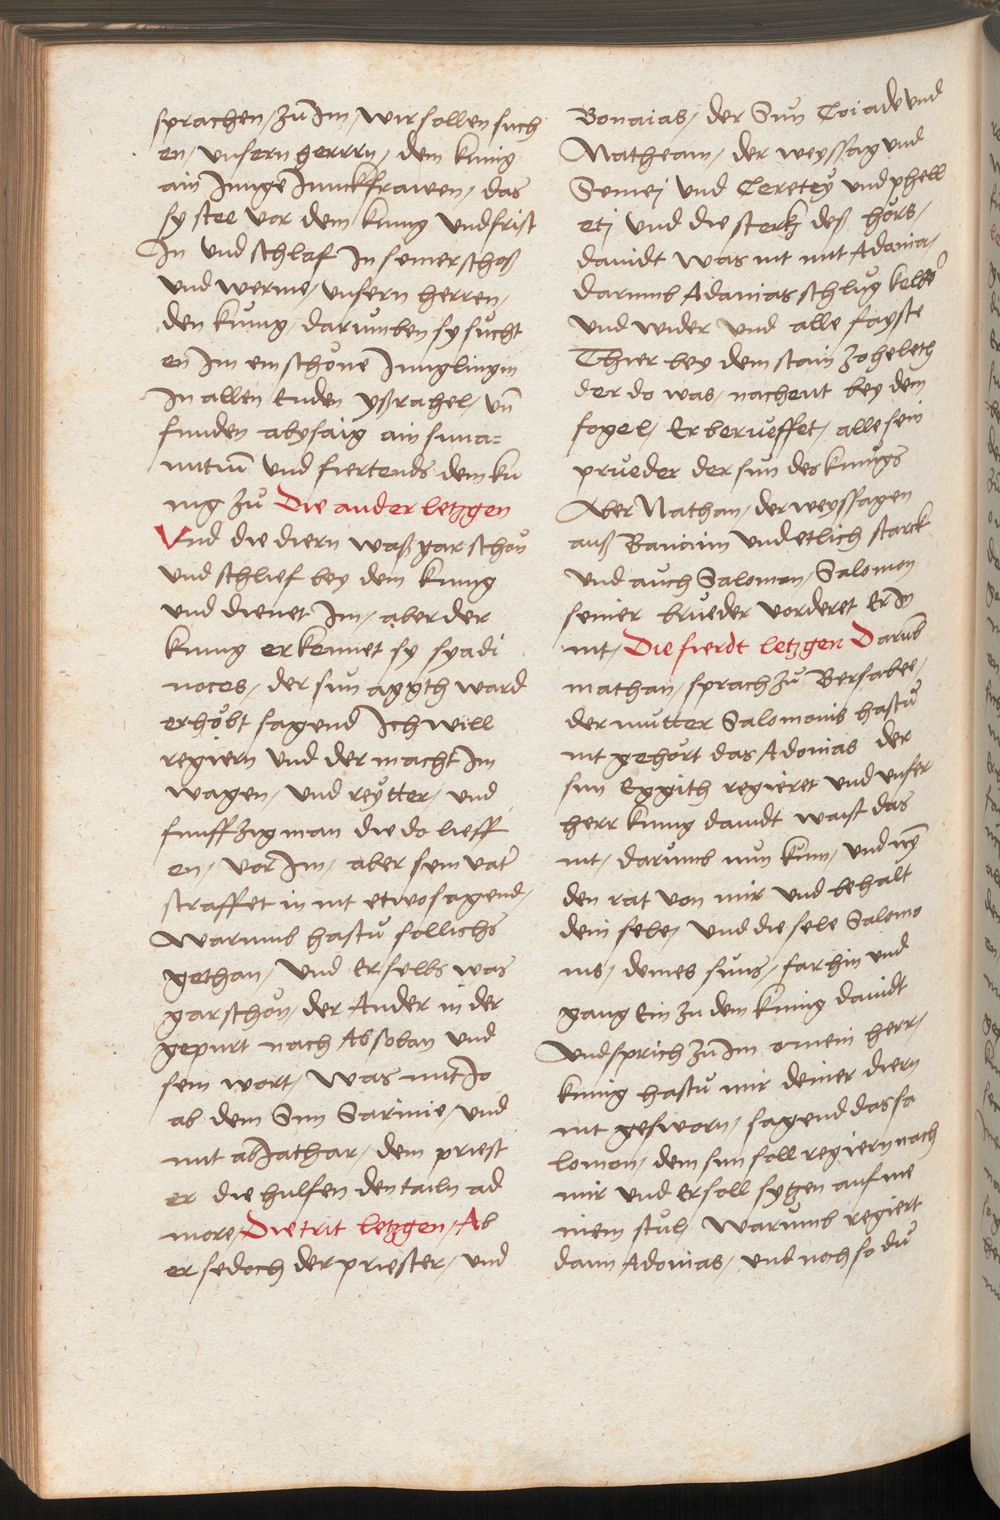 sprachen / zu Im / wir sollen such
en / unsern herrrn / dem kunig
ain Junge Junckfrawen / das
sy stee vor dem kunig und frist
In und schlaf In seiner schoß
und werme / unsern herren /
den kunig / darumben sy sucht
en Im ein schöne Junglingin
In allen Enden yßrahel / un̄
funden abysaig ain suna=
mitin̄ und fiertends dem ku
nig zů Die ander letzgen
Und die diern waß gar schön
und schlief bey dem kunig
und dienet Im / aber der
kunig erkennet sy syadi
noces / der sun aggth ward
erhöbt sagend Ich will
regiern und der macht Im
wagen / und reytter / und
funffzig man die do lieff
en / vor Im / aber sein vater
straffet in nit etwo sagend /
Warumb hastu sollichs
gethan / und Er selbs was
gar schön / der Ander in der
gepurt nach Absolan und
sein wort / was mit Jo
ab dem Sun Sarinie / und
mit abJathar / dem priest
er die hulfen den tailn ad
more / Die trit letzgen / Ab
er sedoch der priester / und
Bonaias / der Sun Joiade und
Natheam / der weyssag und
Semej und Ceretey und phell
etj und die sterk deß hörs /
dauidt was nit mit Adania /
darumb Adanias schlug kelber
und wider und alle fayste
Thier bey dem stain zoheleth
der do was / nachent bey dem
fogel / Er berueffet / alle sein
prueder der sun des kunigs
Aber Nathan / der weyssagen
auß Banaim und etlich starck
und auch Salomon / Salomon
seiner brueder vorderet Er
nit / Die fierdt letzgen Darumb
nathan / sprach zů Bersabee /
der mutter Salomonis hastu
nit gehört das Adonias der
sun Eggith regieret und unser
herr kunig dauidt waist das
nit / darumb nun kum / und nym
den rat von mir und behalt
dein sele / und die sele Salomo
nis / deines suns / far hin und
gang Ein zu dem kunig dauidt
und sprich zu Im o mein herr /
kunig hastu mir deiner diern
nit gesworn / sagend das sa
lomon / dem sun soll regiern nach
mir und Er soll sytzen auf me
inem stul / Warumb regiert
dann Adonias / und noch so du